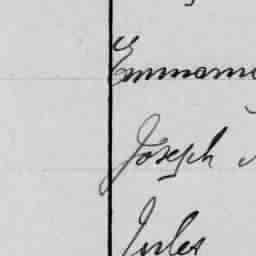 Emmanu
Joseph
Jules